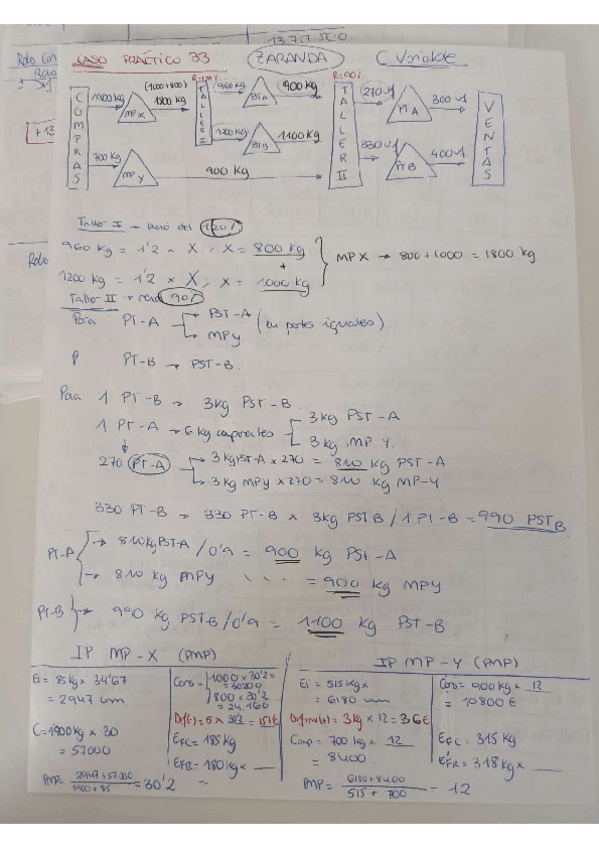 13.767.500.
CASO PRÁCTICO 33 ZARANDA C Variable
R=120% R=90%
COMPRAS 1900 kg MPX (1000+800) 1800 kg TALLER I 960 kg PSTA 900 kg TALLER II 270 u PTA 300 u VENTAS
1200 kg PSTB 1100 kg 330 u PTB 400 u
700 kg MPY 900 kg
Taller I → Rend del 120%
960 kg = 1'2 × X ; X = 800 kg
+ MPX → 800 + 1000 = 1800 kg
1200 kg = 1'2 × X ; X = 1000 kg
Taller II → rend 90%
Para PT-A PST-A (en partes iguales)
MPY
P PT-B → PST-B.
Para 1 PT-B → 3kg PST-B.
1 PT-A → 6 kg 3 kg PST-A
3 kg MP Y.
270 PT-A → 3 kg PST-A × 270 = 810 kg PST-A
→ 3 kg MPY × 270 = 810 kg MP-Y
330 PT-B → 330 PT-B × 3kg PSTB / 1 PT-B = 990 PSTB
PT-A → 810 kg PST-A / 0'9 = 900 kg PST-A
→ 810 kg MPY = 900 kg MPY
PT-B → 990 kg PSTB / 0'9 = 1100 kg PST-B
IP MP-X (PMP) IP MP-Y (PMP)
Ei = 85 kg × 34'67
= 2947 um
C = 1900 kg × 30
= 57000
PMP = 2947 + 57.000 / 1900 + 85 = 30'2
Cons 1000 × 30'2 = 30200
800 × 30'2 = 24.160
Dif(-) = 5 × 30'2 = 151€
EFC = 185 kg
EFR = 180 kg ×
Ei = 515 kg ×
= 6180 um
Dif inv(+) = 3 kg × 12 = 36€
Comp = 700 kg × 12
= 8400
PMP = 6180 + 8400 / 515 + 700 = 12
Cons = 900 kg × 12
= 10800 €
EFC = 315 kg
EFR = 318 kg ×